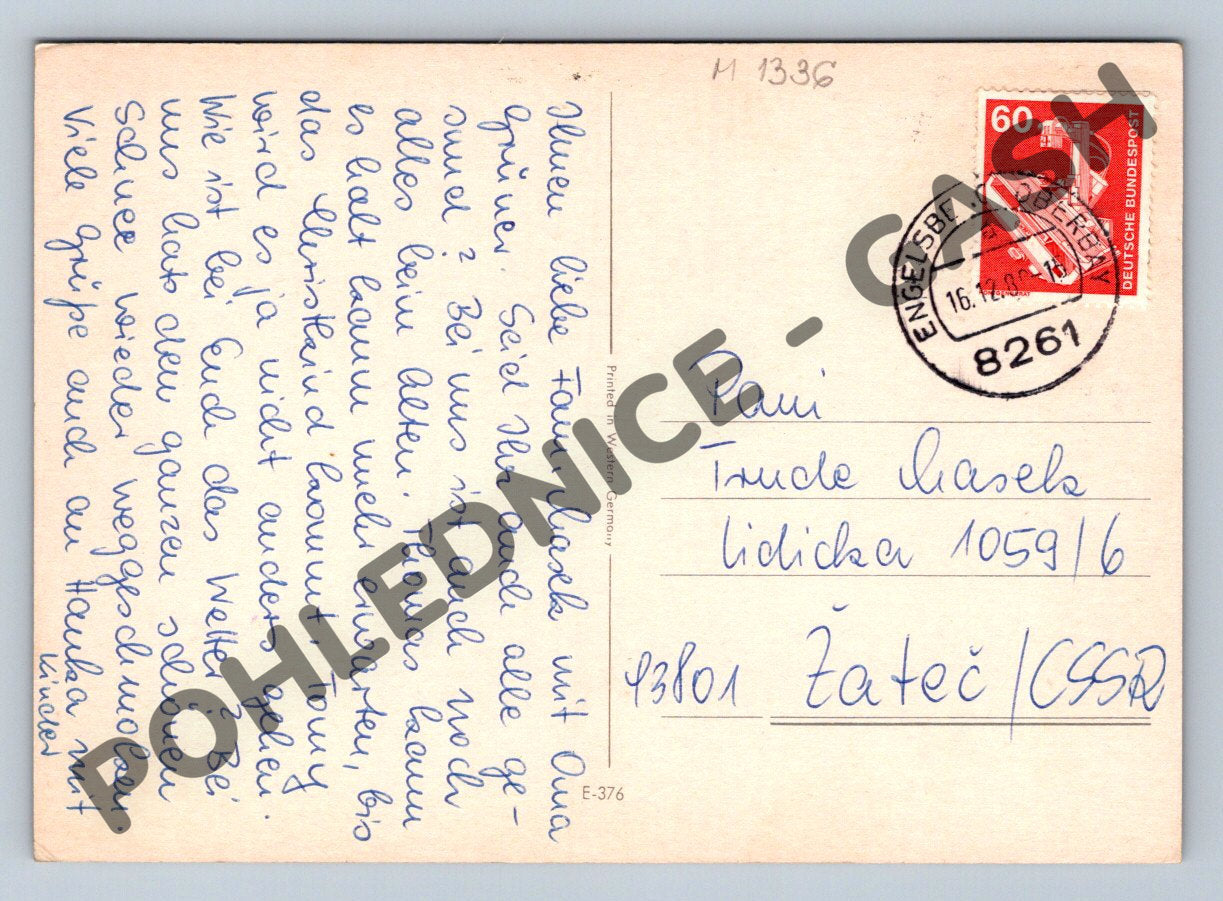 M 1336
60
DEUTSCHE BUNDESPOST
ENGELSBE OBERBAY
16.12.8 -15
8261
Ihnen liebe Fam. Masek mit Oma
Grüner. Seid Ihr auch alle ge-
sund? Bei uns ist auch noch
alles beim Alten. Thomas kann
es halt kaum mehr erwarten, bis
das Christkind kommt. Tomy
wird es ja nicht anders gehen.
Wie ist bei Euch das Wetter? Bei
uns hats den ganzen schönen
Schnee wieder weggeschmolzen.
Viele Grüße auch an Hanka mit
Kinder
Printed in Western Germany
E-376
Pani
Trude Masek
Lidicka 1059/6
43801 Žateč/CSSR
POHLEDNICE - CASH